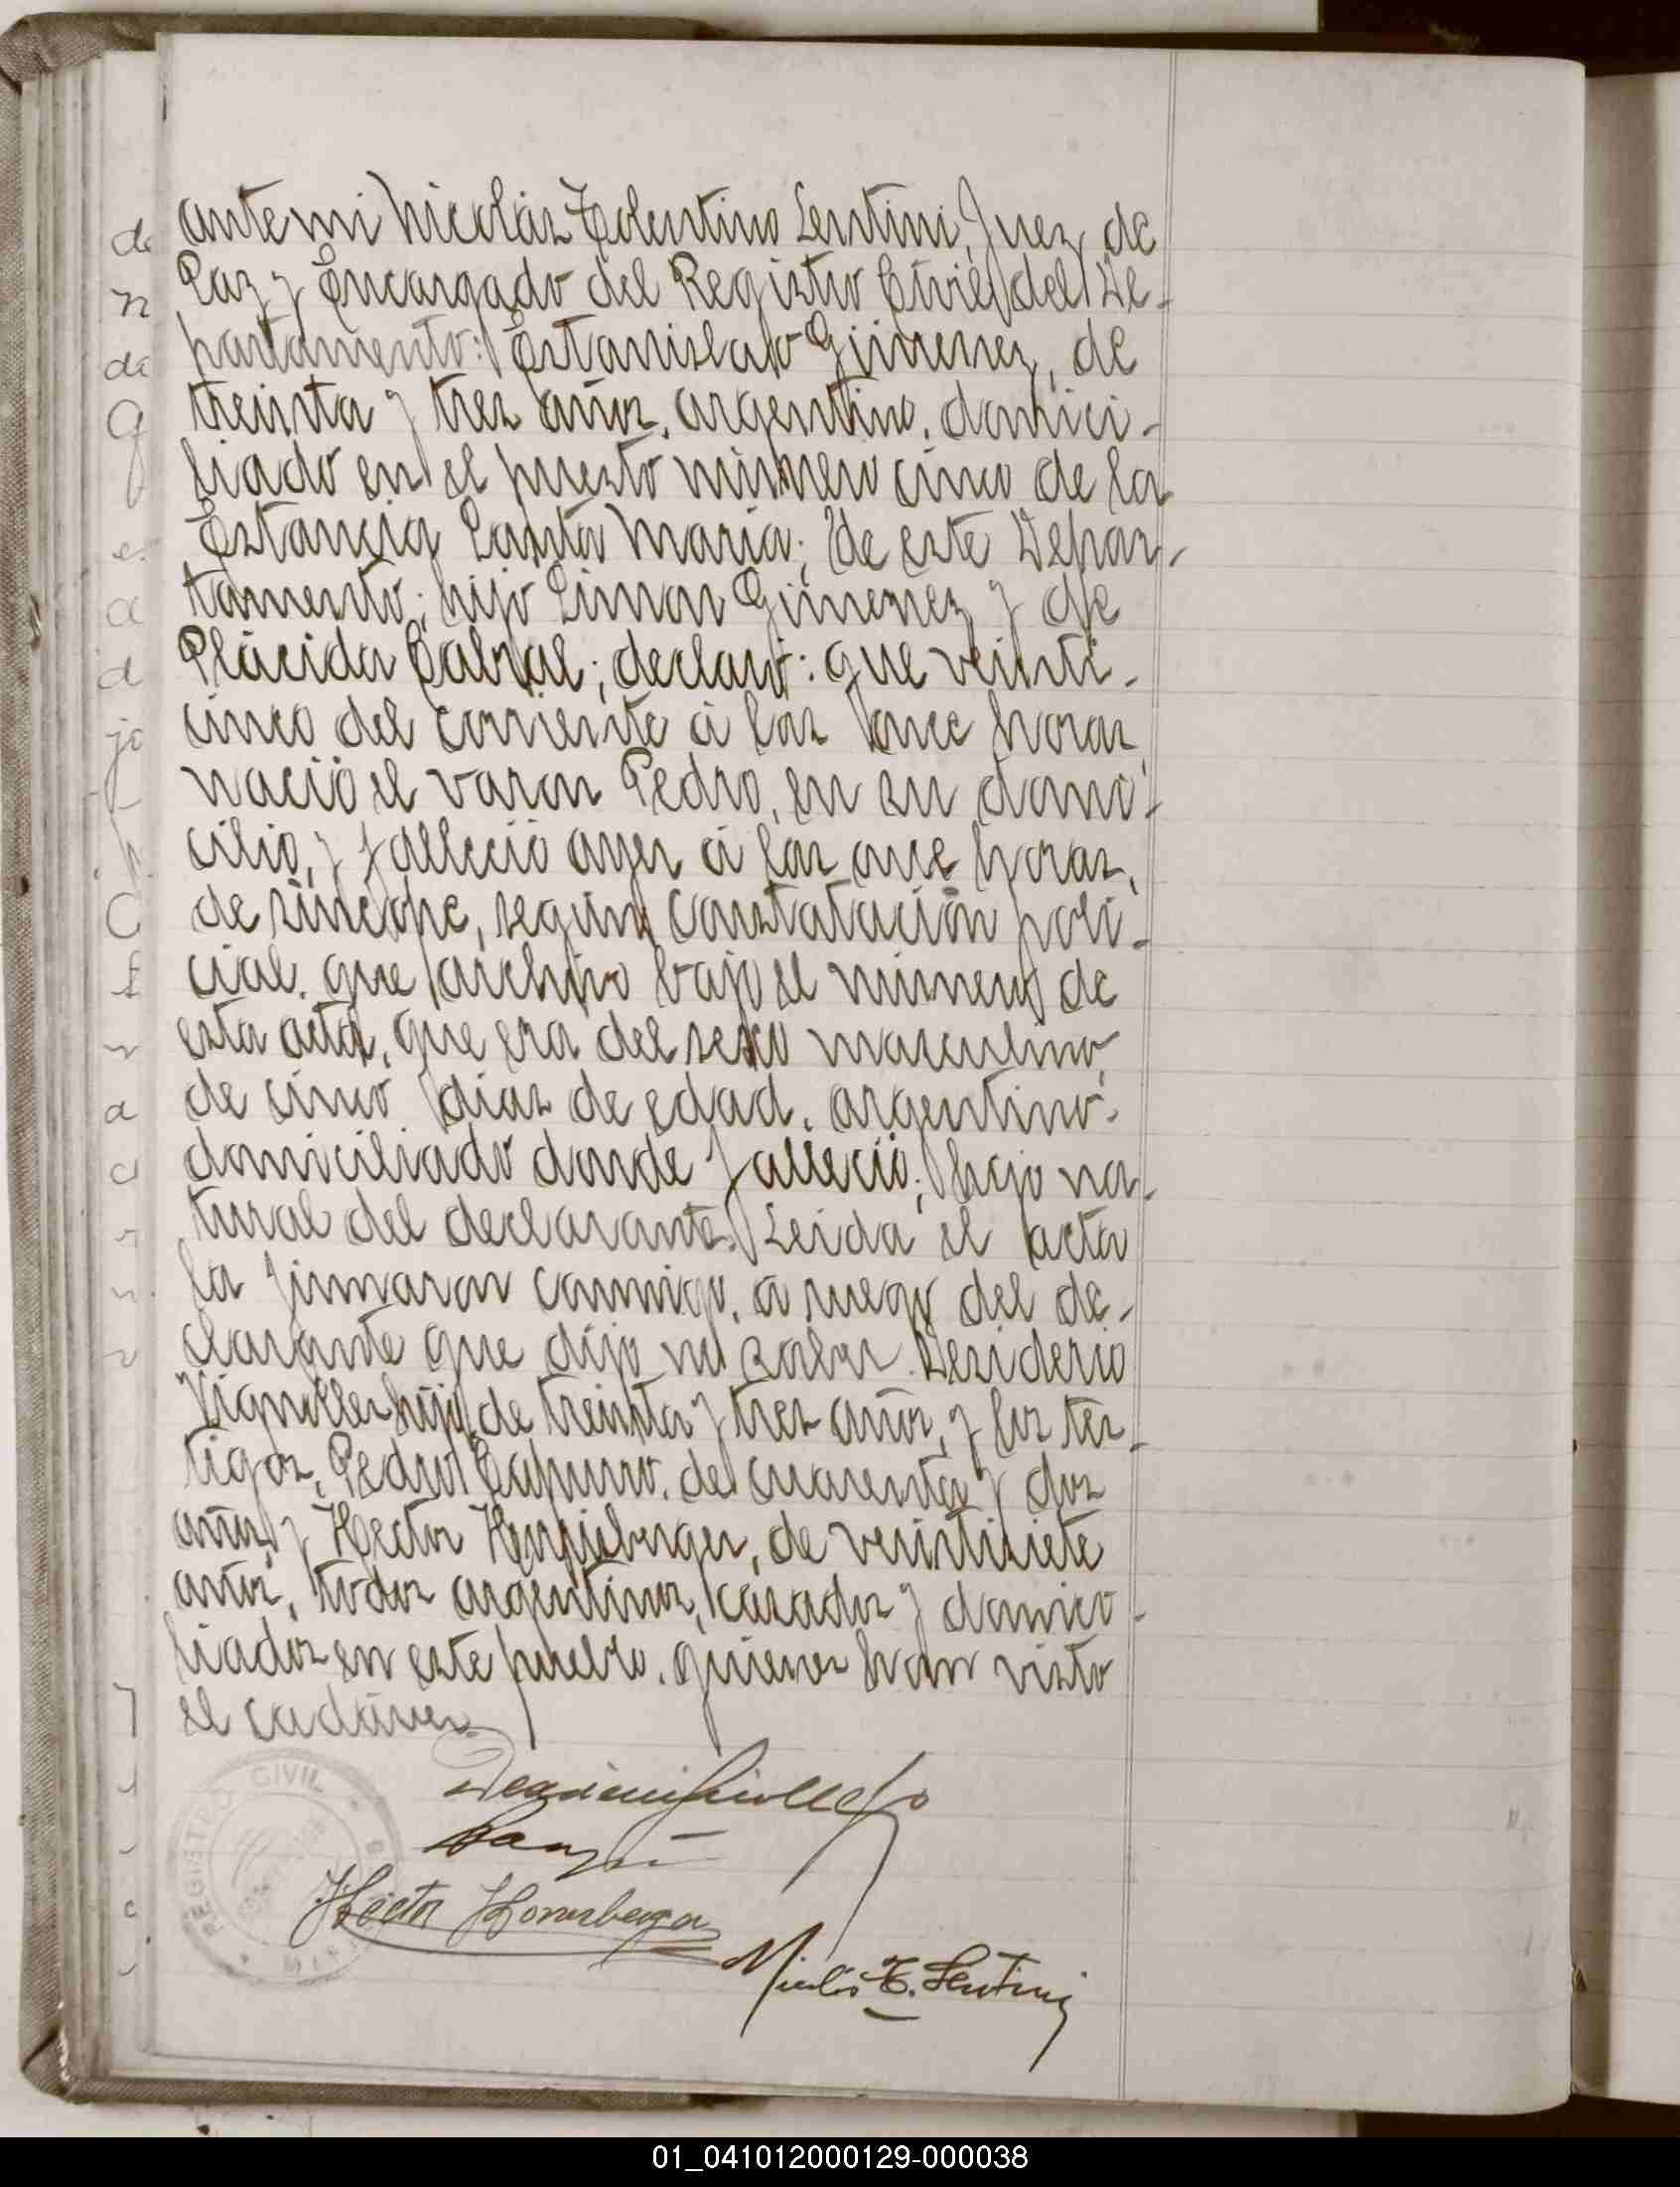 ante mi Nicolás Tolentino Lentini, Juez de
Paz y Encargado del Registro Civil del De-
partamento: Estanislao Gimenez, de
treinta y tres años, argentino, domici-
liado en el puesto número cinco de la
Estancia Santa Maria, de este Depar-
tamento; hijo Simon Gimenez y de
Plácida Cabral; declaró: que veinti-
cinco del corriente á las once horas
nació el varon Pedro, en su domi-
cilio, y falleció ayer á las once horas,
de síncope, según constatación poli-
cial, que archivo bajo el número de
esta acta, que era del sexo masculino,
de cinco dias de edad, argentino,
domiciliado donde falleció; hijo na-
tural del declarante. Leida el acta
la firmaron conmigo, a ruego del de-
clarante que dijo no saber Desiderio
Vignolles hijo, de treinta y tres años, y los tes-
tigos, Pedro de cuarenta y dos
años y Hector de veintisiete
años, todos argentinos, casados y domici-
liados en este pueblo, quienes han visto
el cadáver.
Hector
Nicolás T. Lentini
REGISTRO CIVIL
01_041012000129-000038